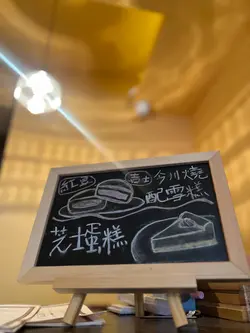 紅豆 芝士 今川燒
配雪糕
芝士蛋糕